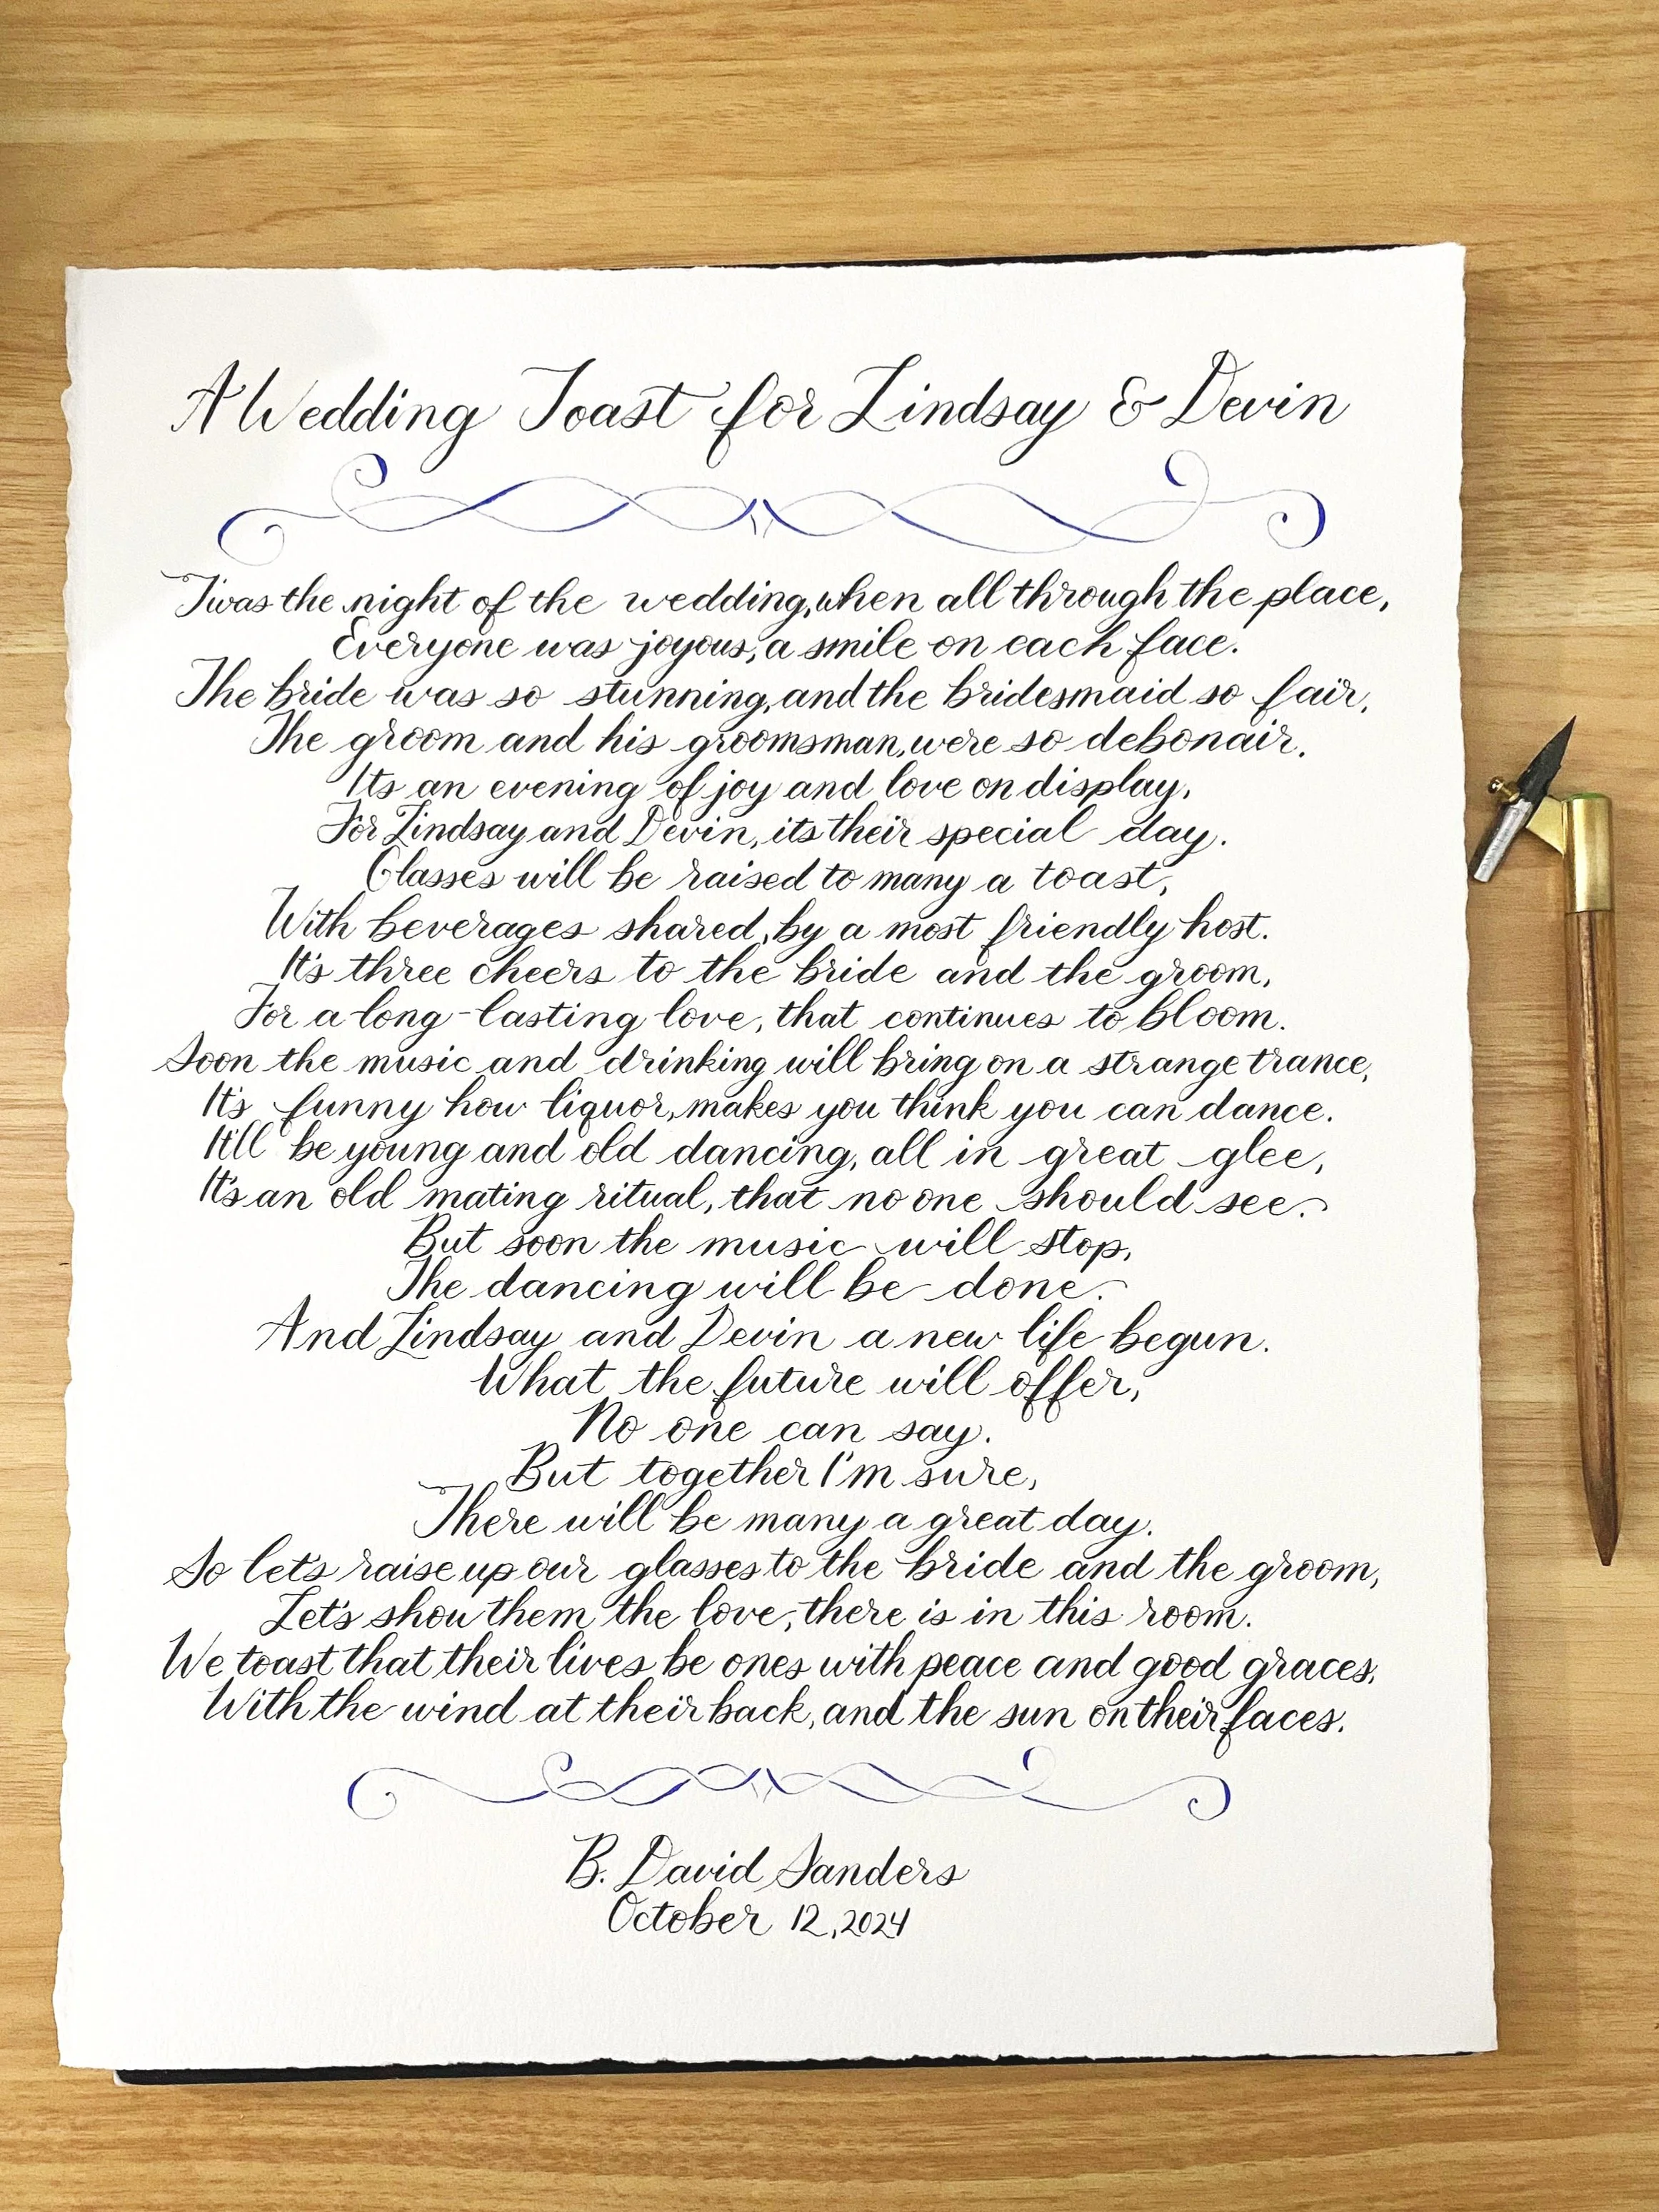 A Wedding Toast for Lindsay & Devin
'Twas the night of the wedding, when all through the place,
Everyone was joyous, a smile on each face.
The bride was so stunning, and the bridesmaid so fair,
The groom and his groomsman, were so debonair.
Its an evening of joy and love on display,
For Lindsay and Devin, its their special day.
Glasses will be raised to many a toast,
With beverages shared, by a most friendly host.
It's three cheers to the bride and the groom,
For a long-lasting love, that continues to bloom.
Soon the music and drinking will bring on a strange trance,
It's funny how liquor, makes you think you can dance.
It'll be young and old dancing, all in great glee,
It's an old mating ritual, that no one should see.
But soon the music will stop,
The dancing will be done.
And Lindsay and Devin a new life begun.
What the future will offer,
No one can say.
But together I'm sure,
There will be many a great day.
So let's raise up our glasses to the bride and the groom,
Let's show them the love, there is in this room.
We toast that their lives be ones with peace and good graces,
With the wind at their back, and the sun on their faces.
B. David Sanders
October 12, 2024